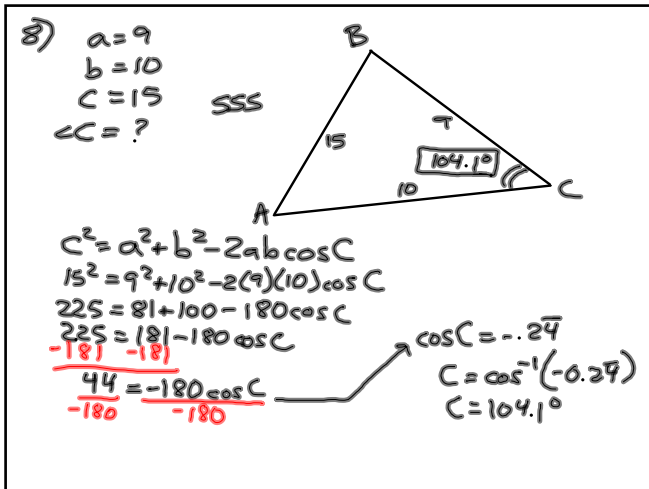 8) a=9
b=10
c=15
SSS
<C=?
B
15
9
104.1°
10
A
C
c²=a²+b²-2abcosC
15²=9²+10²-2(9)(10)cosC
225=81+100-180cosC
225=181-180cosC
-181 -181
44=-180cosC
-180 -180
cosC=-.24̅
C=cos⁻¹(-0.24̅)
C=104.1°